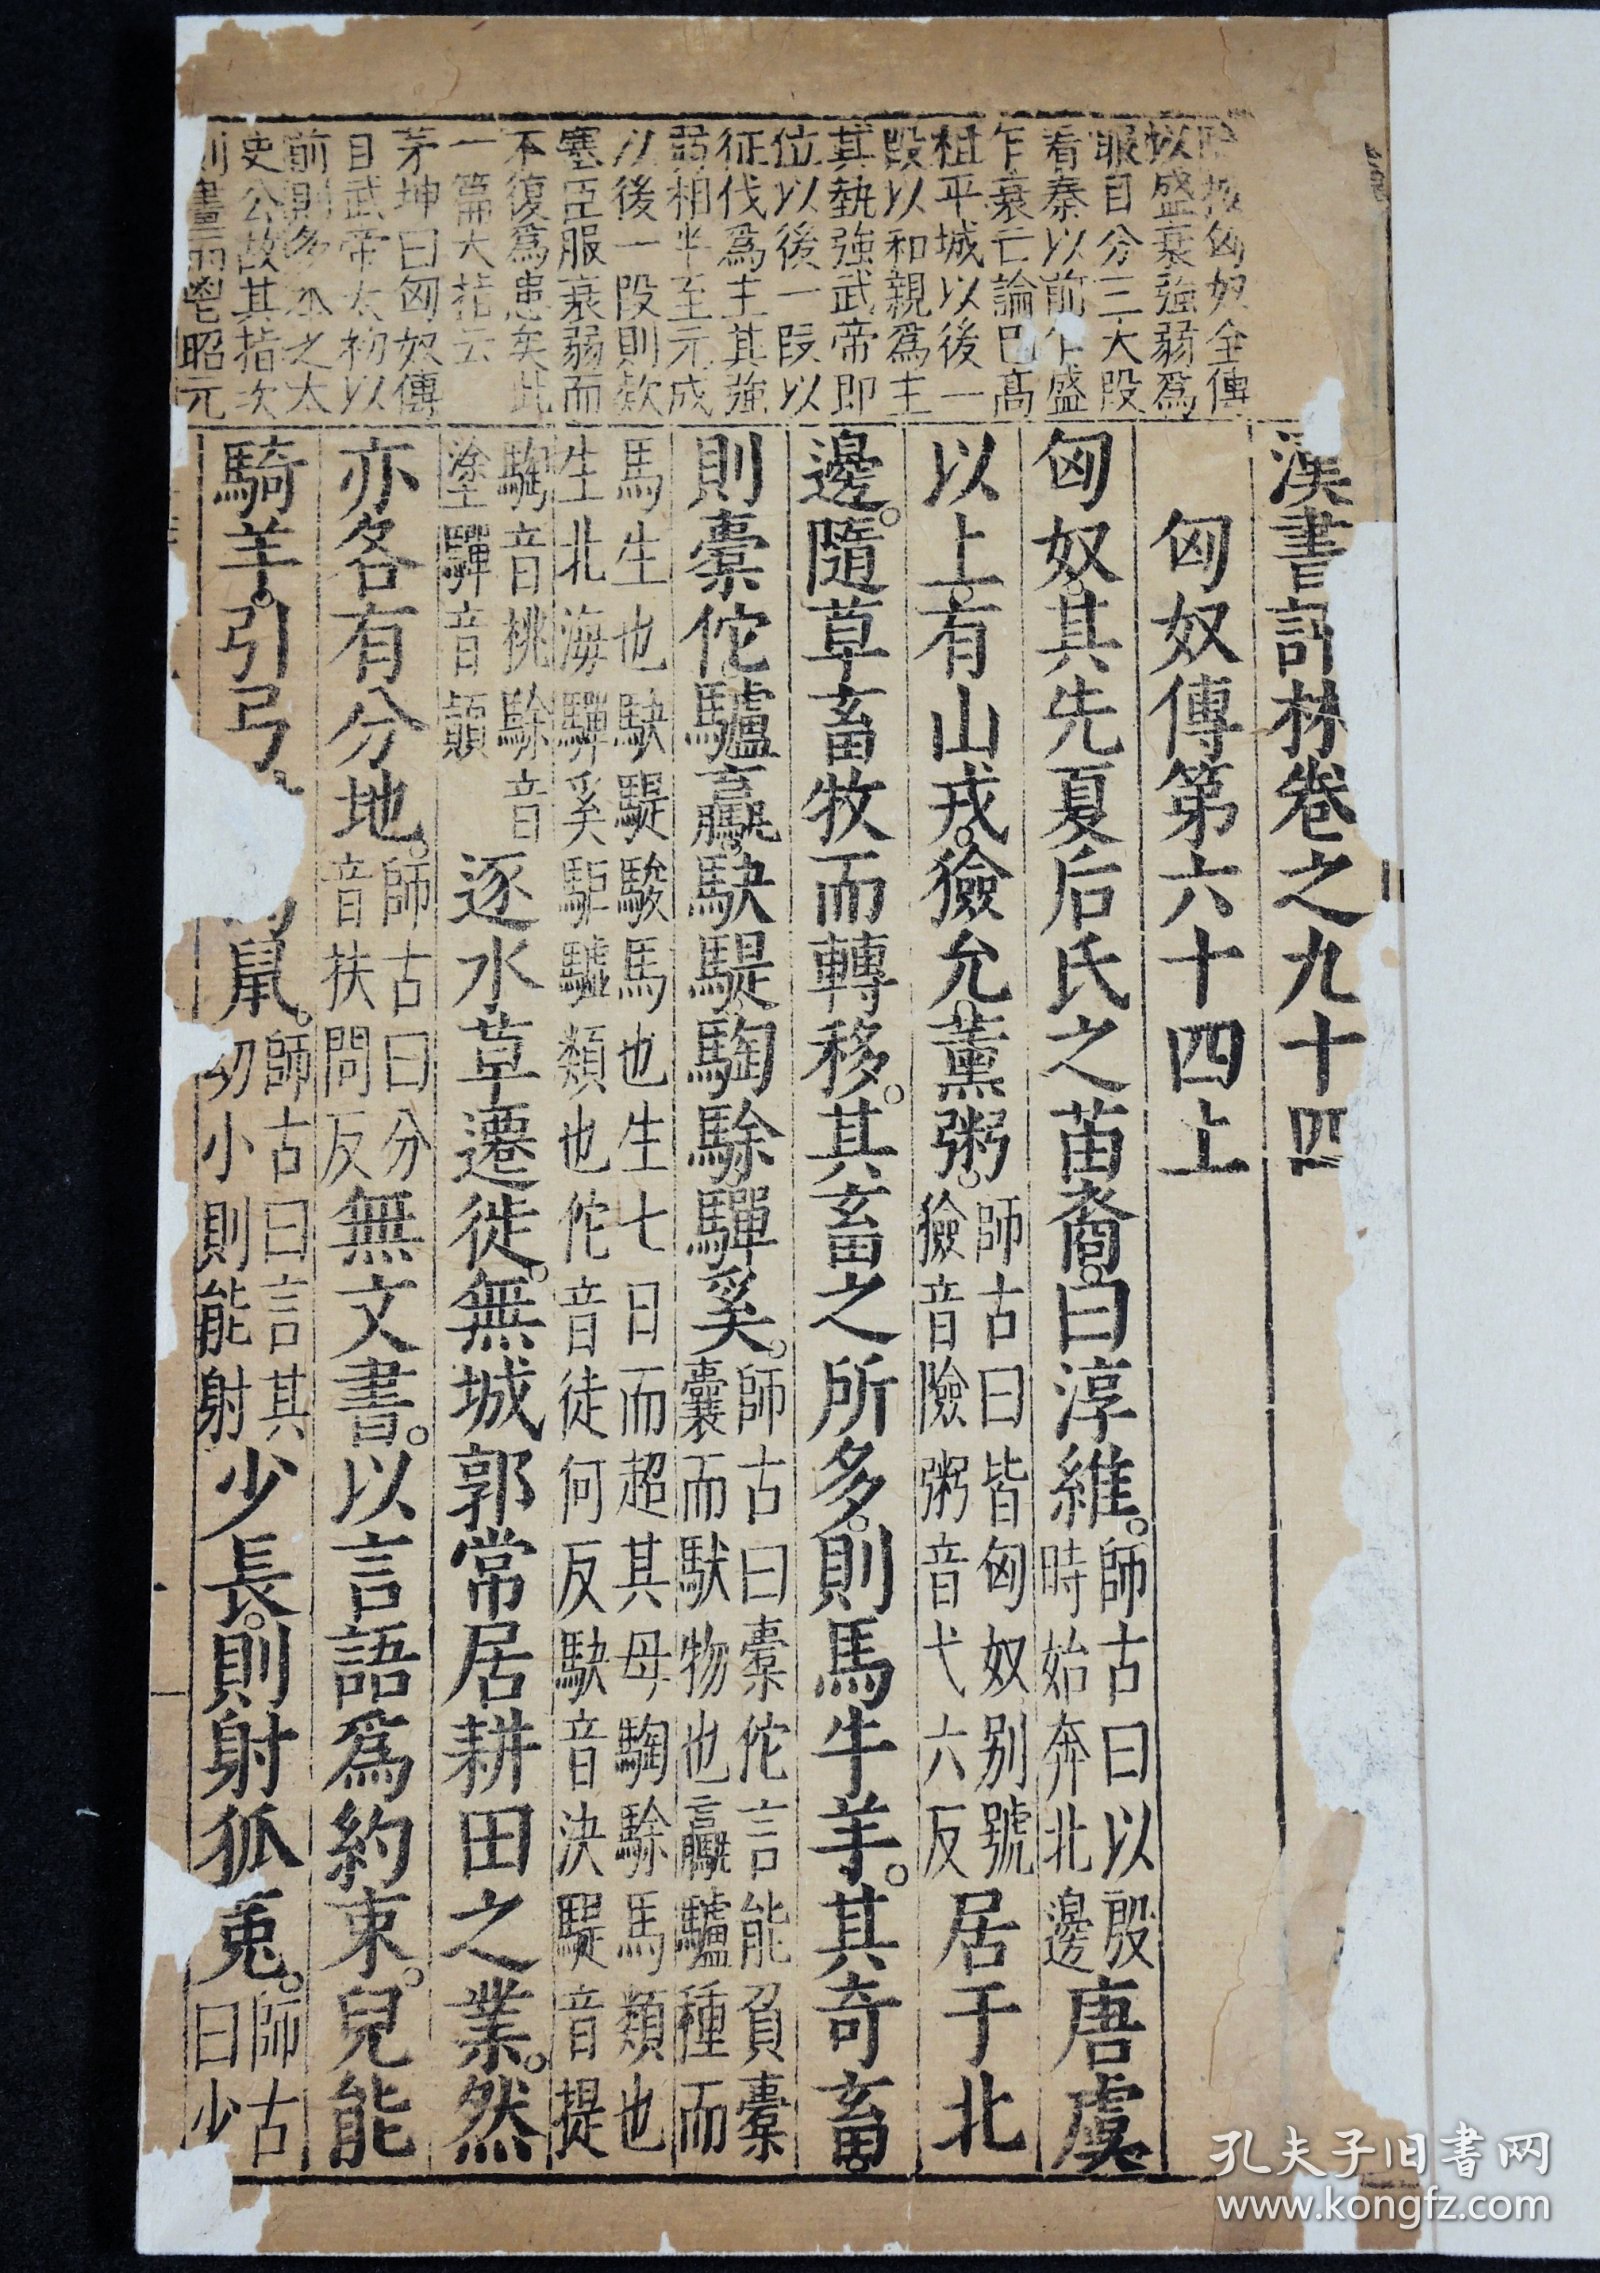 按匈奴全傳
以盛衰強弱爲
眼目分三大段
看秦以前乍盛
乍衰亡論已高
祖平城以後一
段以和親爲主
其執強武帝即
位以後一段以
征伐爲主其強
弱相半至元成
以後一段則款
塞臣服衰弱而
不復爲患矣此
一篇大指云
茅坤曰匈奴傳
目武帝太初以
前則多本之太
史公故其指次
則畫而鬯昭元
漢書評林卷之九十四
匈奴傳第六十四上
匈奴。其先夏后氏之苗裔。曰淳維。師古曰以殷時始奔北邊唐虞
以上。有山戎。獫允。薰粥。師古曰皆匈奴別號獫音險粥音弋六反居于北
邊。隨草畜牧而轉移。其畜之所多。則馬牛羊。其奇畜。
則橐佗驢驘。駃騠。騊駼。驒奚。師古曰橐佗言能負橐囊而馱物也驘驢種而
馬生也駃騠駿馬也生七日而超其母騊駼馬類也生北海驒奚駏驉類也佗音徒何反駃音決騠音提
騊音桃駼音塗驒音顛逐水草遷徙。無城郭常居耕田之業。然
亦各有分地。師古曰分音扶問反無文書。以言語爲約束。兒能
騎羊。引弓鼠。師古曰言其幼小則能射少長。則射狐兎。師古曰少
孔夫子旧书网
www.kongfz.com